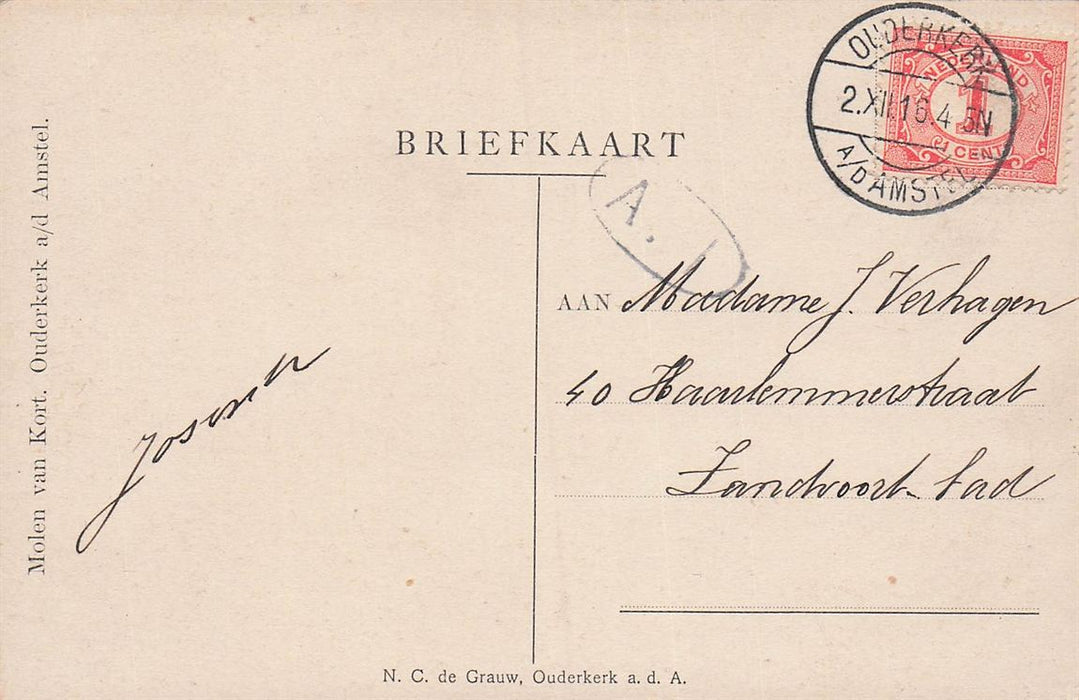 Molen van Kort. Ouderkerk a/d Amstel.
BRIEFKAART
OUDERKERK
2.XII.16.4-5N
A/D AMSTEL
NEDERLAND
1
CENT
A.
AAN Madame J. Verhagen
40 Haarlemmerstraat
Zandvoort
N. C. de Grauw, Ouderkerk a. d. A.